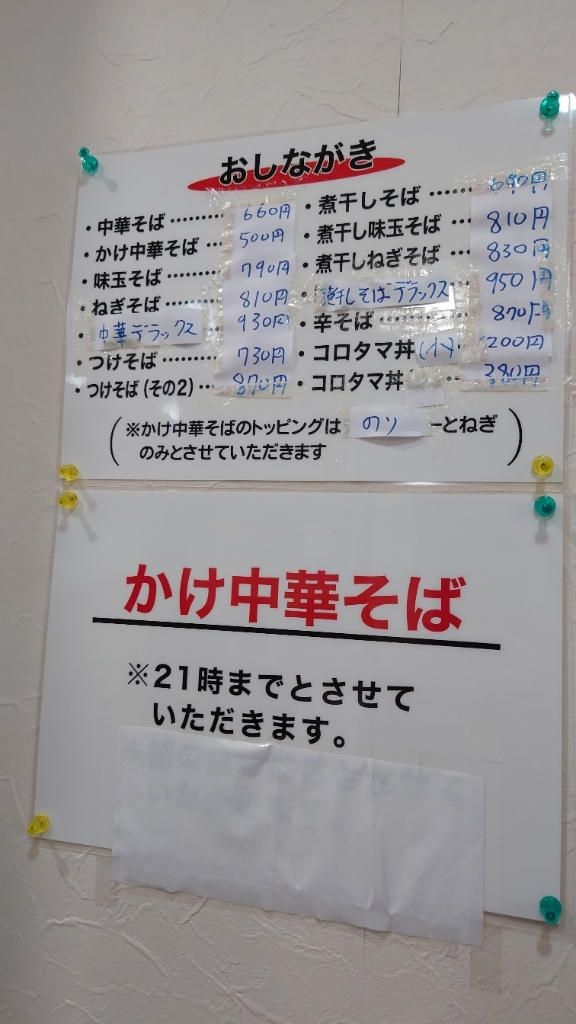 おしながき
・中華そば……… 660円
・かけ中華そば … 500円
・味玉そば 790円
・ねぎそば 810円
・中華デラックス 930円
つけそば ……… 730円
・つけそば(その2)… 870円
・煮干しそば …… 690円
・煮干し味玉そば 810円
・煮干しねぎそば 830円
・煮干しそばデラックス 950円
・辛そば ……… 870円
・コロタマ丼(小) 200円
・コロタマ丼 380円
(※かけ中華そばのトッピングは のり ーとねぎ
のみとさせていただきます)
かけ中華そば
※21時までとさせて
いただきます。